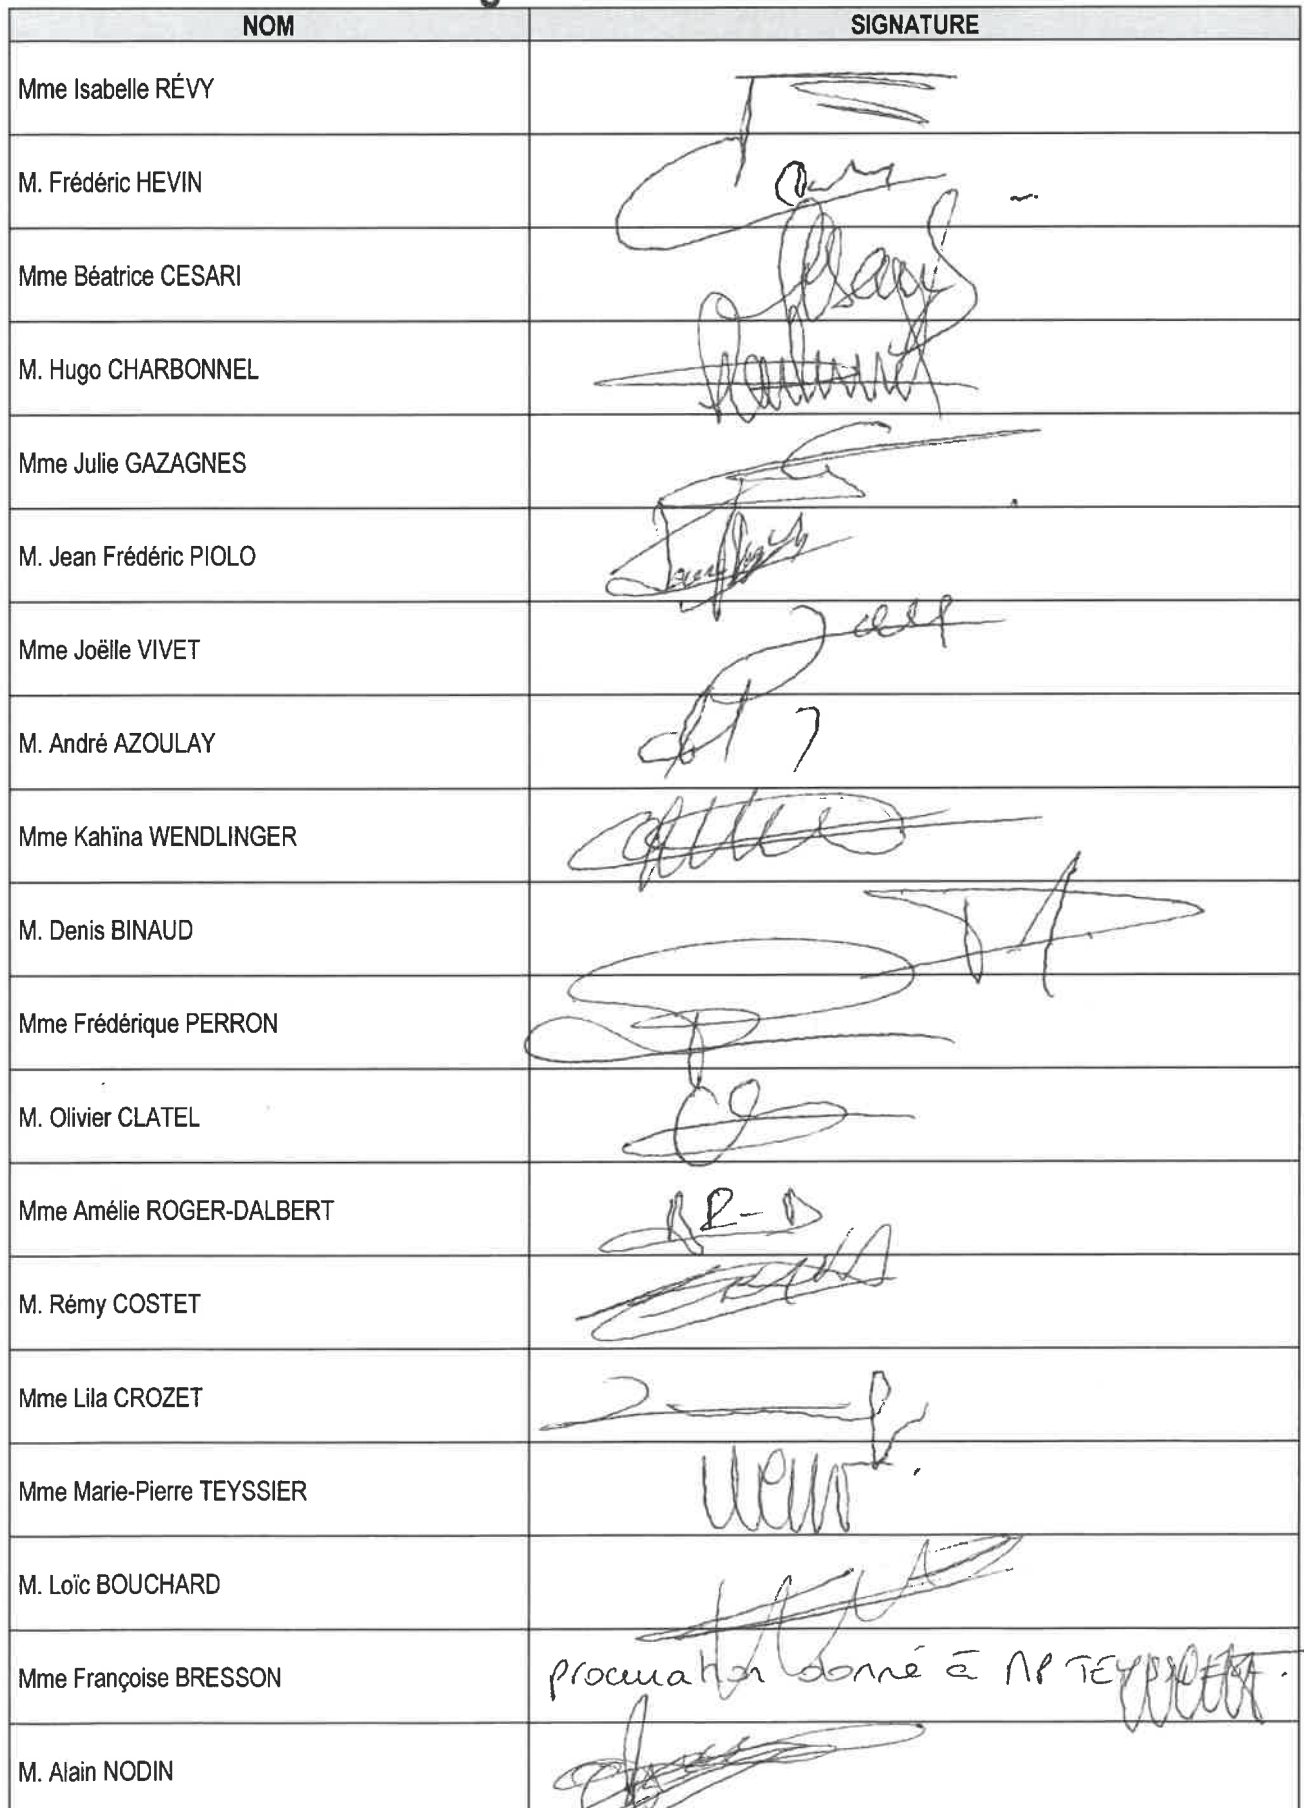 NOM SIGNATURE
Mme Isabelle RÉVY
M. Frédéric HEVIN
Mme Béatrice CESARI
M. Hugo CHARBONNEL
Mme Julie GAZAGNES
M. Jean Frédéric PIOLO
Mme Joëlle VIVET
M. André AZOULAY
Mme Kahïna WENDLINGER
M. Denis BINAUD
Mme Frédérique PERRON
M. Olivier CLATEL
Mme Amélie ROGER-DALBERT AR-D
M. Rémy COSTET
Mme Lila CROZET
Mme Marie-Pierre TEYSSIER
M. Loïc BOUCHARD
Mme Françoise BRESSON procuration donné à MP TEYSSIER.
M. Alain NODIN